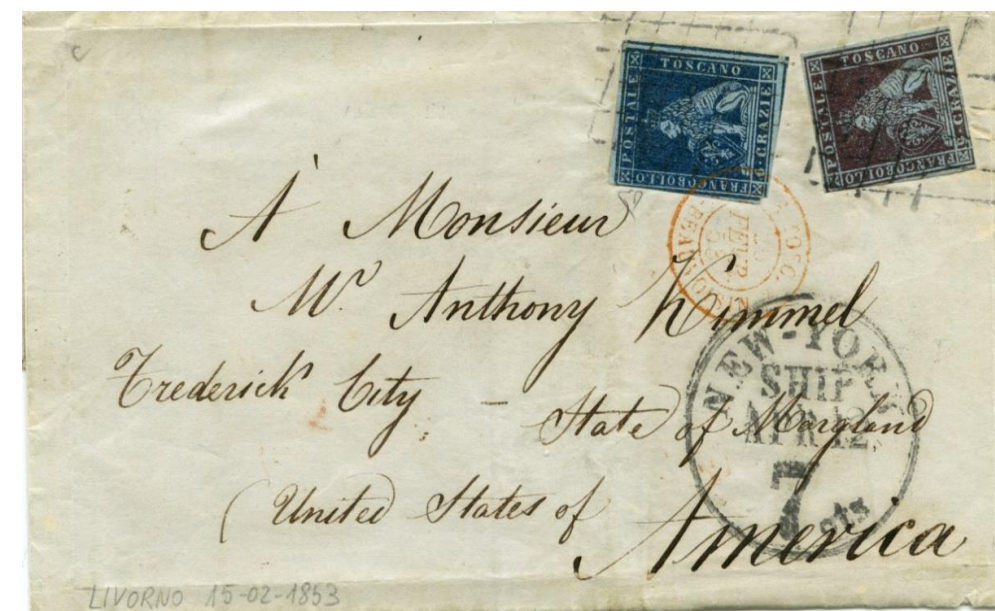 POSTALE TOSCANO 6 CRAZIE FRANCOBOLLO
POSTALE TOSCANO 9 CRAZIE FRANCOBOLLO
À Monsieur
Mr. Anthony Kimmel
Frederick City — State of Maryland
(United States of America
TOSC.
FEVR.
53
NEW-YORK
SHIP
APR 12
7
cts
LIVORNO 15-02-1853